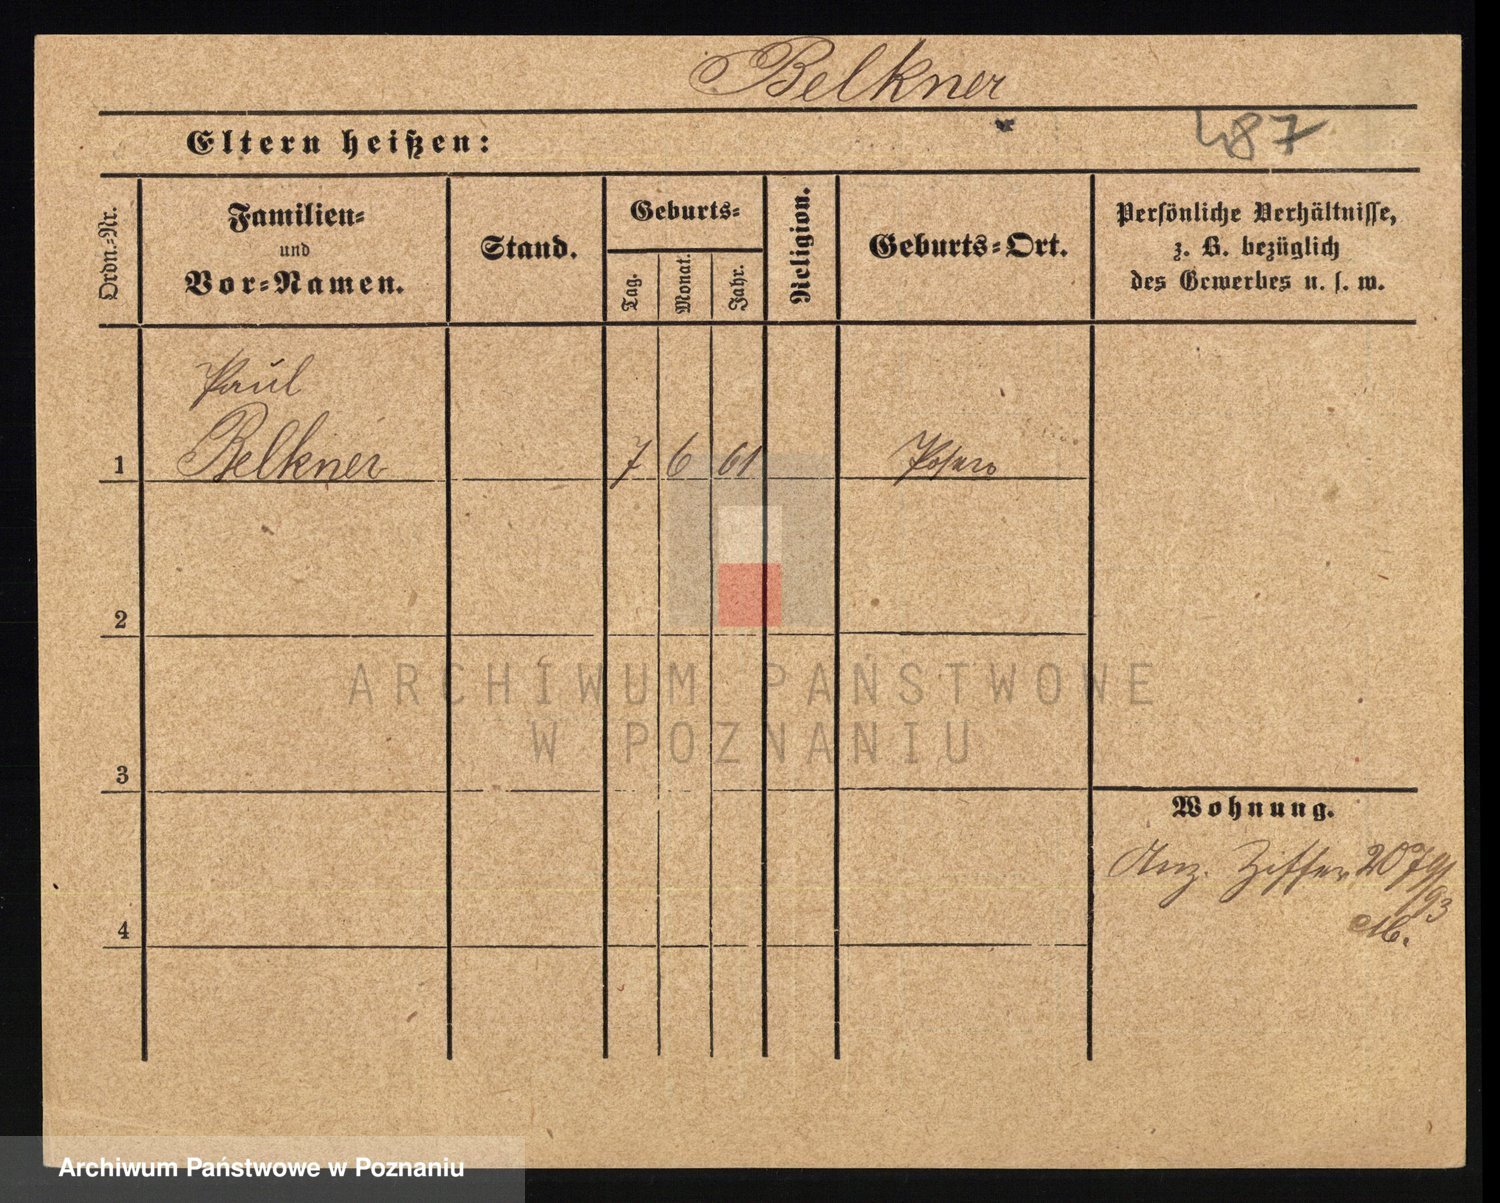 Belkner
487
Eltern heißen:
Ordn.-Nr.
Familien-
und
Vor-Namen.
Stand.
Geburts-
Tag.
Monat.
Jahr.
Religion.
Geburts-Ort.
Persönliche Verhältnisse,
z. B. bezüglich
des Gewerbes u. s. w.
Paul
1 Belkner 7 6 61 Posen
2
3
4
Wohnung.
Anz. Ziffer 2079/
93
ARCHIWUM PAŃSTWOWE
W POZNANIU
Archiwum Państwowe w Poznaniu